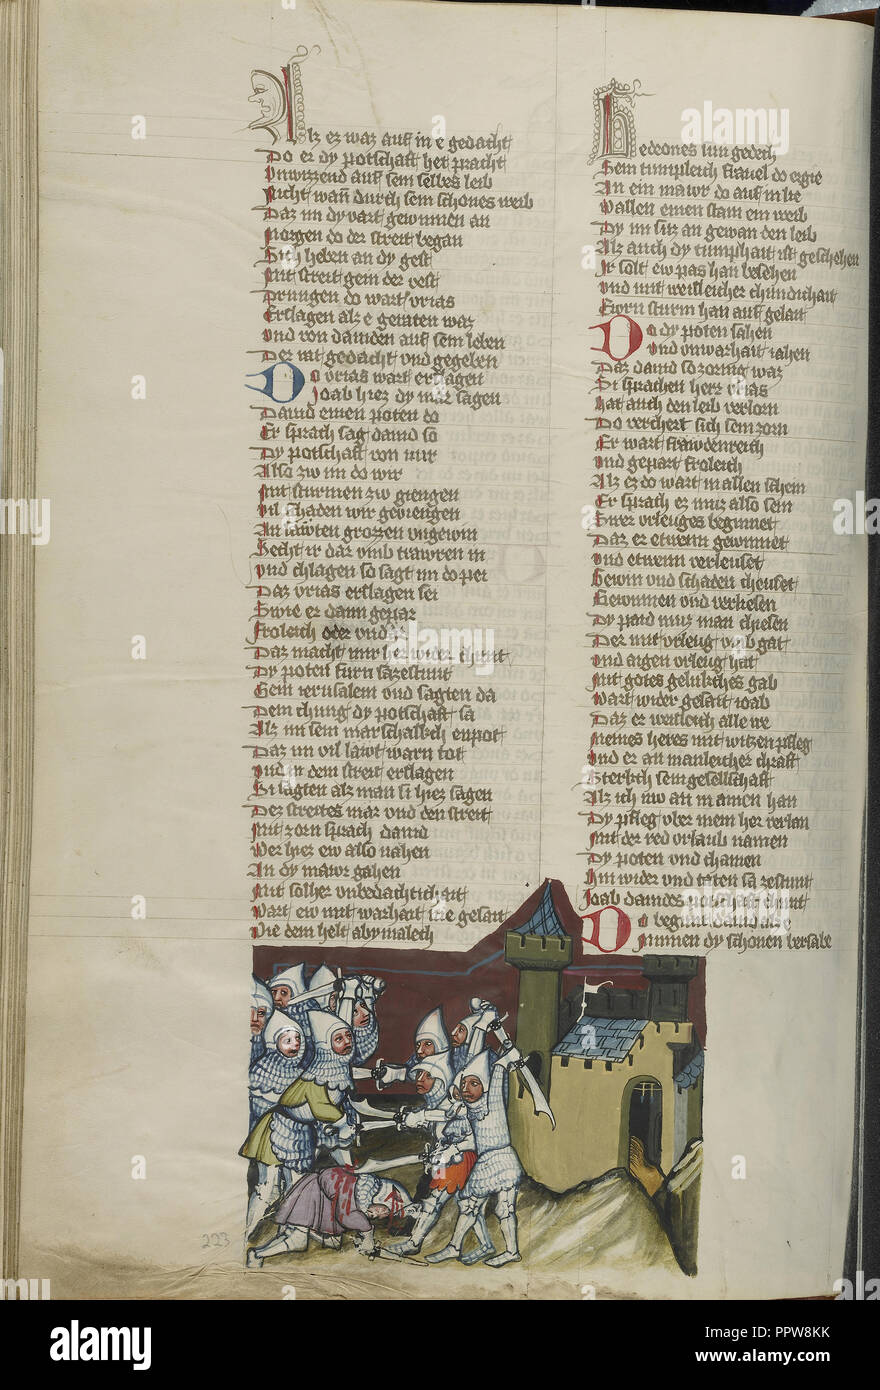 Alz er waz auf in e gedacht
Do er dy potschaft het pracht
Unwizzend auf sein selbes leib
Nicht wan durch sein schones weib
Daz im dy vart gewunnen an
Morgen do der streit began
Sich heben an dy gest
Mit streit gein der vest
Drungen do wart vrias
Erslagen alz e geraten waz
Und von dauiden auf sein leben
Der mit gedacht vnd gegeben
Do vrias wart erslagen
Joab hiez dy mar sagen
Dauid einen poten do
Er sprach sag dauid so
Dy potschaft von mir
Also zw im do wir
Mit sturmen zw giengen
Vil schaden wir
An lawten grozzen ungewin
Secht ir dar vmb trawren in
Und chlagen so sagt im do pei
Daz vrias erslagen sei
Swie er dann gepar
Froleich oder
Daz macht mir her wider chunt
Dy poten furn sazestunt
Gein ierusalem vnd sagten da
Dem chung dy potschaft sa
Alz im sein marschalkch enpot
Daz im vil lawt warn tot
Und in dem streit erslagen
Si sagten alz man si hiez sagen
Dez streites mar vnd den streit
Mit zorn sprach dauid
Wer hiez ew also nahen
An dy mawr gahen
Mit solher vnbedachtichait
Wart ew mit warhait nie gesait
Wie dem helt abymalech
Gedeones sun gedech
Sein tumpleich frauel do ergie
An ein mawr do auf in lie
Vallen einen stain ein weib
Dy im siz an gewan den leib
Alz auch dy tumphait ist geschehen
Ir solt ew pas han besehen
Und mit weisleicher chundichait
Ewrn sturm han auf gelait
Do dy poten sahen
Und vnwarhait iahen
Daz dauid so zornig waz
Si sprachen herr vrias
Hat auch den leib verlorn
Do verchert sich sein zorn
Er wart frawdenreich
Und gepart froleich
Alz ez do wart in allen schein
Er sprach ez muz also sein
Swer vrleuges beginnet
Daz er etwenn gewinnet
Und etwenn verleuset
Gewin vnd schaden cheuset
Gewinnen vnd verliesen
Dy paid muz man chiesen
Der mit vrleug vmb gat
Und aigen vrleug hat
Mit gotes gelukches gab
Wart wider gesait ioab
Daz er weisleich alle we
Meines heres mit witzen pfleg
Und er an manleicher chraft
Sterkch sein geselschaft
Alz ich nw an in amen han
Dy pfleg vber mein her verlan
Mit der red vrlaub namen
Dy poten vnd chamen
Hin wider vnd teten sa zestunt
Joab dauides potschaft chunt
Do begund dauid
Minnen dy schonen bersabe
223
alamy
Image ID: PPW8KK
www.alamy.com